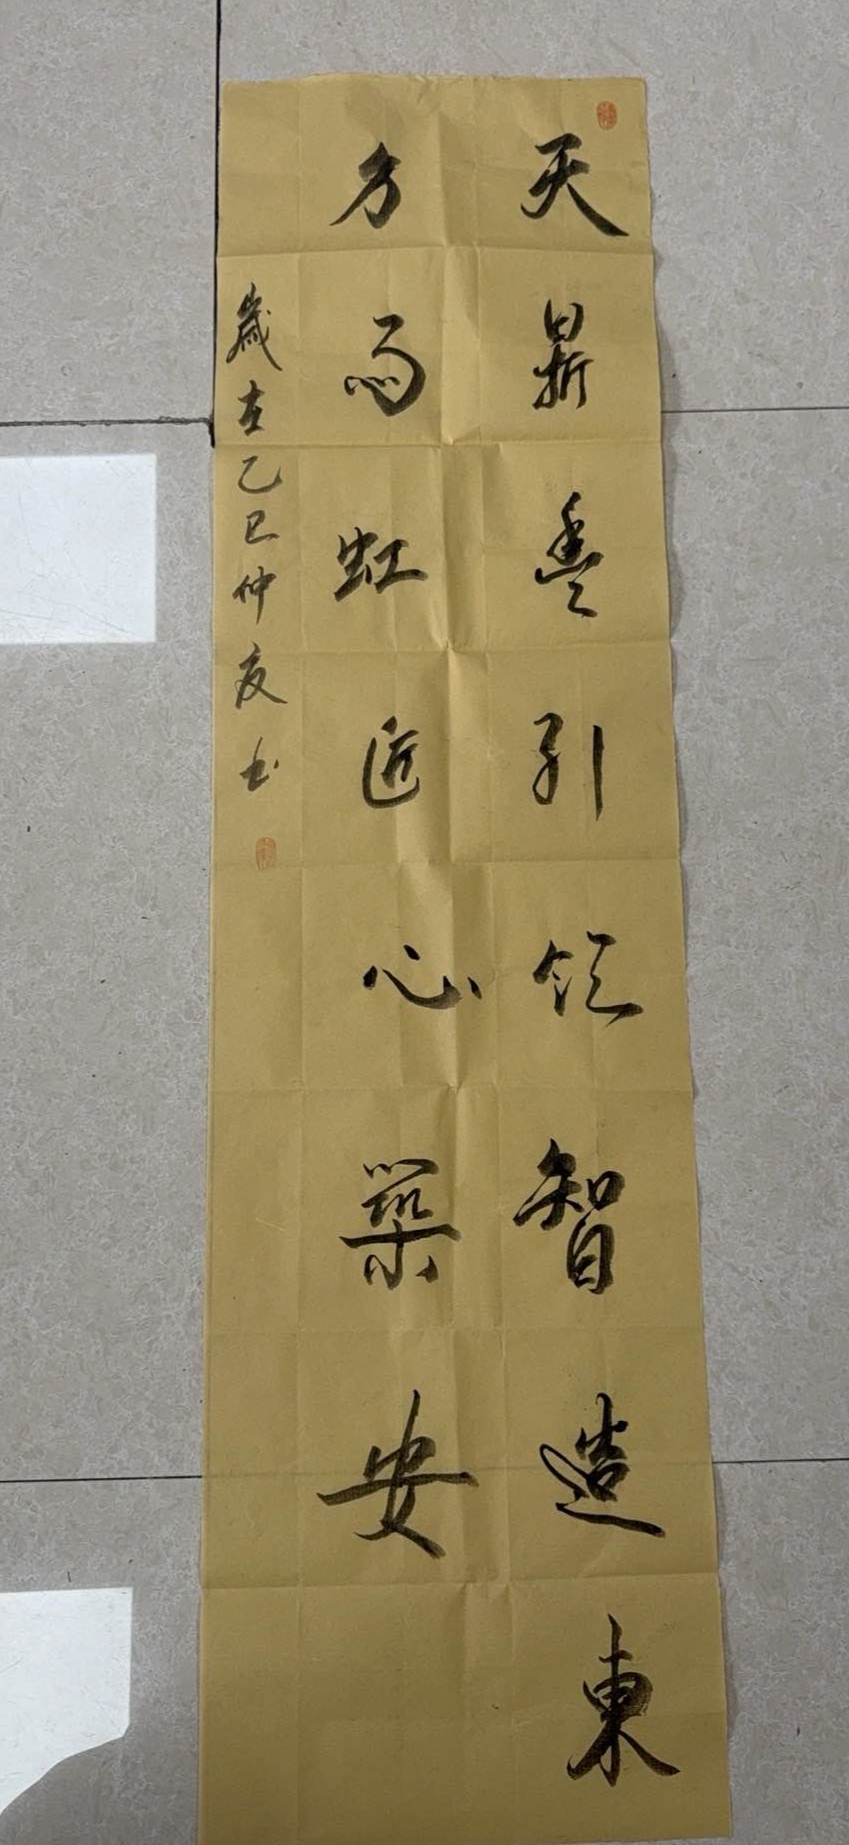 天鼎豐引领智造東
方雨虹匠心築安
歲在乙巳仲夏书